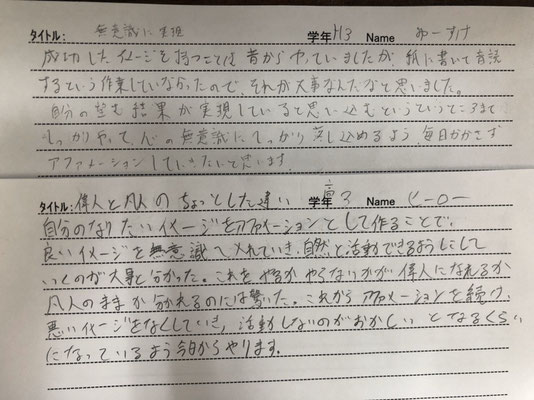 タイトル: 無意識に実現 学年 H3 Name ゆーすけ
成功したイメージを持つことは昔からやっていましたが、紙に書いて音読
するという作業していなかったので、それが大事なんだなと思いました。
自分の望む結果が実現していると思い込むというところまで
しっかりやって、心の無意識にしっかり落し込めるよう、毎日かかさず
アファメーションしていきたいと思います。
タイトル: 偉人と凡人のちょっとした違い 学年 高3 Name ヒーロー
自分のなりたいイメージをアファメーションとして作ることで、
良いイメージを無意識へ入れていき、自然と活動できるようにして
いくのが大事と分かった。これをやるかやらないかが偉人になれるか
凡人のままか分かれるのには驚いた。これからアファメーションを続け、
悪いイメージをなくしていき、活動しないのがおかしいとなるくらい
になっているよう今日からやります。